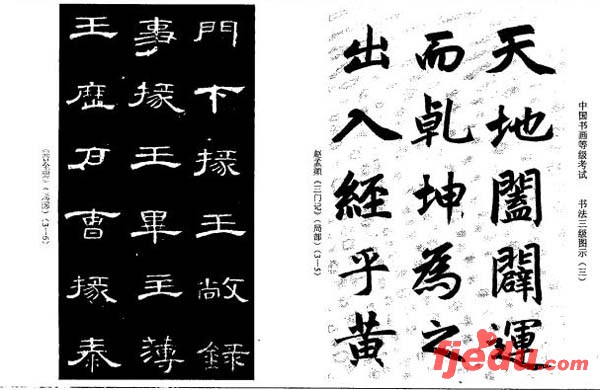 中国书画等级考试 书法三级图示(三)
天地闔闢運
而乾坤為之
出入經乎黄
赵孟頫《三门记》(局部)(3—5)
門下掾王敞録
事掾王畢主薄
王歷户曹掾秦
《曹全碑》(局部)(3—6)
fjedu.com